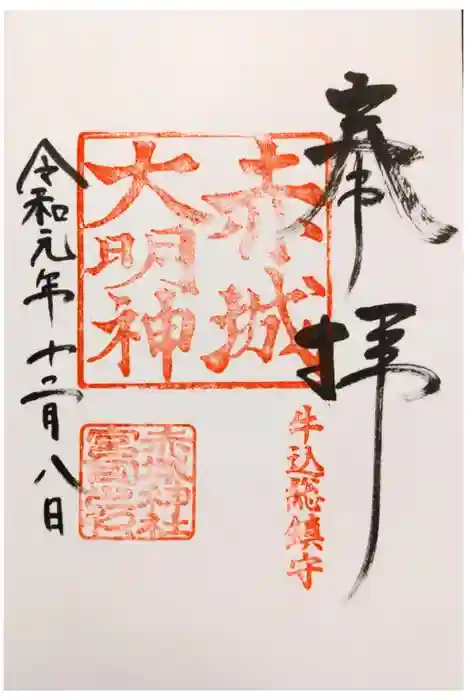 奉拝
牛込総鎮守
赤城
大明神
赤城神社
令和元年十二月八日